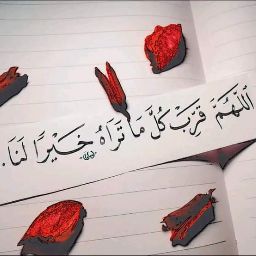 اَللَّهُمَّ قَرِّبْ كُلَّ مَا تَرَاهُ خَيْرًا لَنَا.